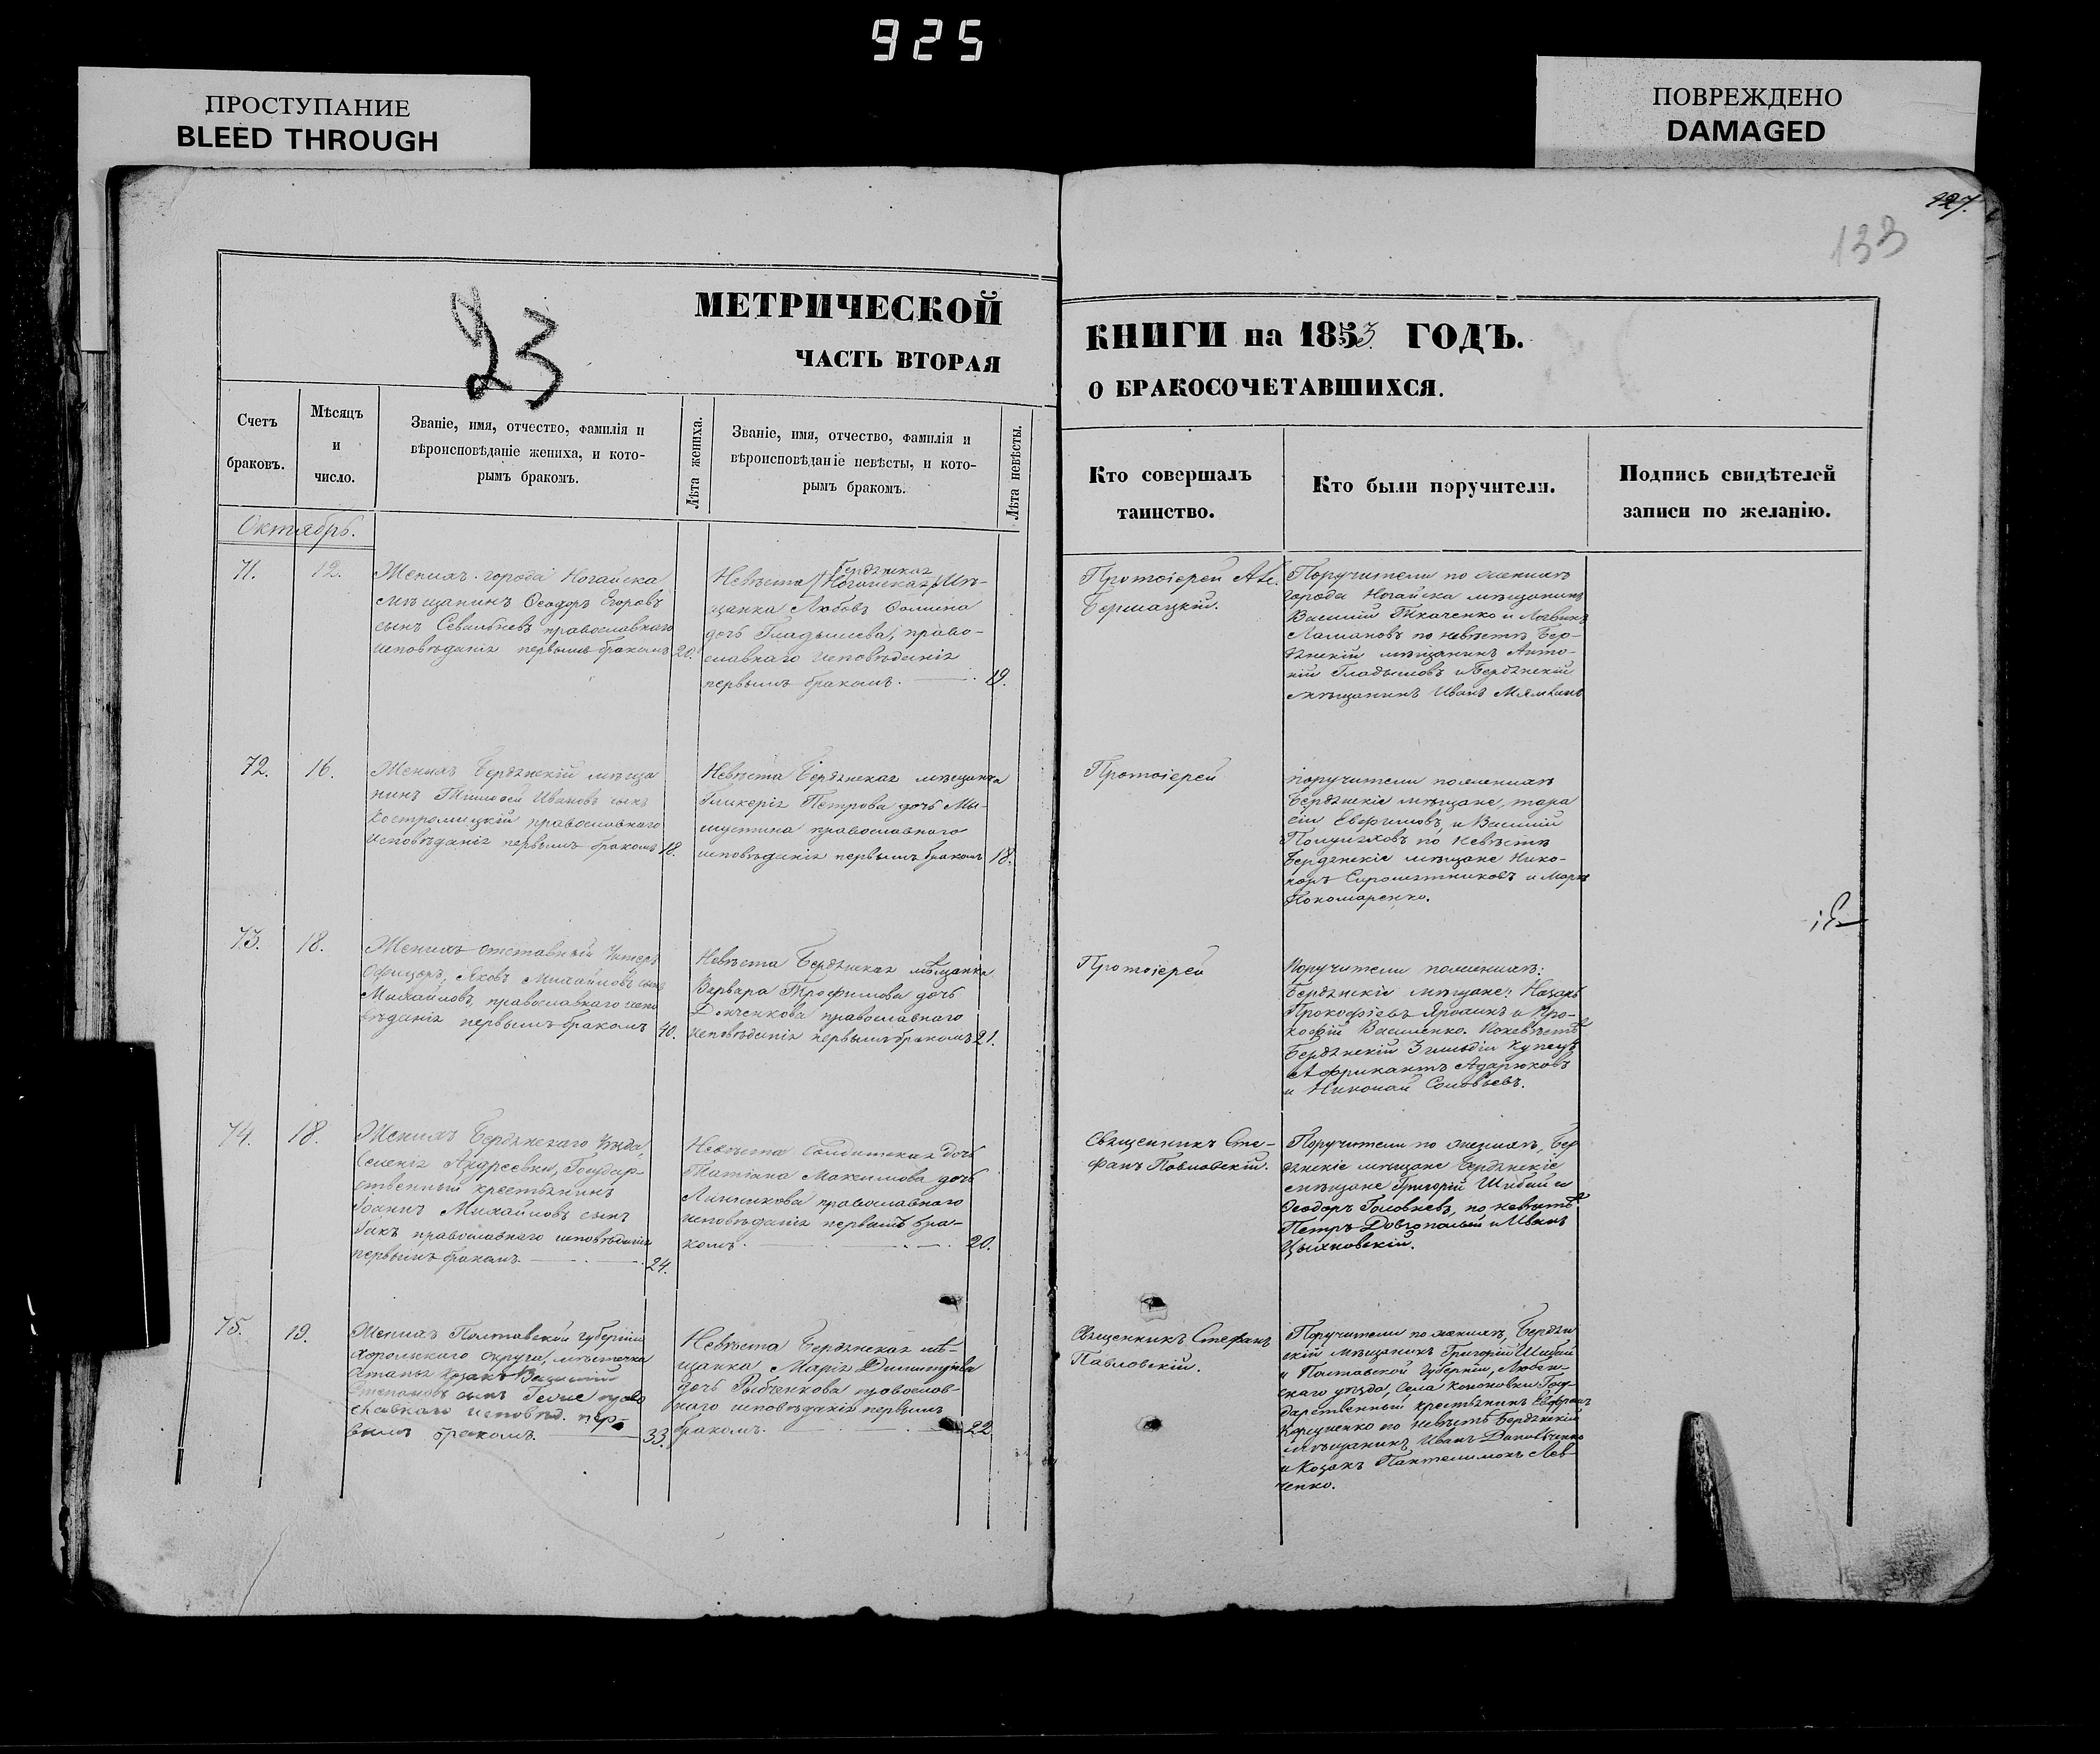 925
ПРОСТУПАНИЕ
BLEED THROUGH
ПОВРЕЖДЕНО
DAMAGED
927.
133
23
МЕТРИЧЕСКОЙ
ЧАСТЬ ВТОРАЯ
КНИГИ на 1853 ГОДЪ.
О БРАКОСОЧЕТАВШИХСЯ.
Счетъ
браковъ.
Мѣсяцъ
и
число.
Званіе, имя, отчество, фамилія и
вѣроисповѣданіе жениха, и кото-
рымъ бракомъ.
Лѣта жениха.
Званіе, имя, отчество, фамилія и
вѣроисповѣданіе невѣсты, и кото-
рымъ бракомъ.
Лѣта невѣсты.
Кто совершалъ
таинство.
Кто были поручители.
Подпись свидѣтелей
записи по желанію.
Октябрь.
71.
12.
Женихъ города Ногайска
мѣщанинъ Ѳеодоръ Егоровъ
сынъ православнаго
исповѣданія первымъ бракомъ
20.
Бердянская
Невѣста Ногайская Мѣ-
щанка Любовь Ѳомина
дочь Гладышева, право-
славнаго исповѣданія
первымъ бракомъ.
19.
Протоіерей Ал.
Поручители по женихѣ
города Ногайска мѣщанинъ
Василій Ткаченко и
по невѣстѣ Бер-
дянскій мѣщанинъ Анто-
ній Гладышовъ и Бердянскій
мѣщанинъ Иванъ
72.
16.
Женихъ Бердянскій мѣща
нинъ Тимоѳей Ивановъ сынъ
Костромицкій православнаго
исповѣданія первымъ бракомъ
18.
Невѣста Бердянская мѣщанка
Гликерія Петрова дочь
православнаго
исповѣданія первымъ бракомъ
18.
Протоіерей
поручители по женихѣ
Бердянскіе мѣщане, Тара
сій Евфимовъ, и Василій
по невѣстѣ
Бердянскіе мѣщане Нико-
норъ и
Пономаренко.
73.
18.
Женихъ отставный Унтеръ
Офицеръ, Яковъ Михайловъ сынъ
Михайловъ, православнаго испо
вѣданія первымъ бракомъ
40.
Невѣста Бердянская мѣщанка
Варвара Трофимова дочь
православнаго
исповѣданія первымъ бракомъ
21.
Протоіерей
Поручители по женихѣ:
Бердянскіе мѣщане: Назаръ
Прокофіевъ и Про-
кофій Василенко. По невѣстѣ
Бердянскій 3 гильдіи Купецъ
Африкантъ Адарюковъ
и Николай Соловьевъ.
74.
18.
Женихъ Бердянскаго Уѣзда,
Селенія Андреевки, Государ-
ственный крестьянинъ
Іоаннъ Михайловъ сынъ
православнаго исповѣданія
первымъ бракомъ.
24.
Невѣста Солдатская дочь
Татіана Максимова дочь
православнаго
исповѣданія первымъ бра-
комъ.
20.
Священникъ Сте-
фанъ Павловскій.
Поручители по женихѣ, Бер
дянскіе мѣщане Бердянскіе
мѣщане Григорій Шибай и
Ѳеодоръ Головневъ, по невѣстѣ
Петръ Довгополый и Иванъ
75.
19.
Женихъ Полтавской губерніи
Хорольскаго округа, мѣстечка
Козакъ Василій
Степановъ сынъ право
славнаго исповѣд. пер-
вымъ бракомъ.
33.
Невѣста Бердянская мѣ-
щанка, Марія Димитріева
дочь Рыбченкова православ-
наго исповѣданія первымъ
бракомъ.
22
Священникъ Стефанъ
Павловскій.
Поручители по женихѣ, Бердян
скій мѣщанинъ Григорій Шибай
и Полтавской Губерніи,
скаго уѣзда, Села Госу-
дарственный крестьянинъ
по невѣстѣ Бердянскій
мѣщанинъ Иванъ
и Козакъ Пантелимонъ Лев-
ченко.